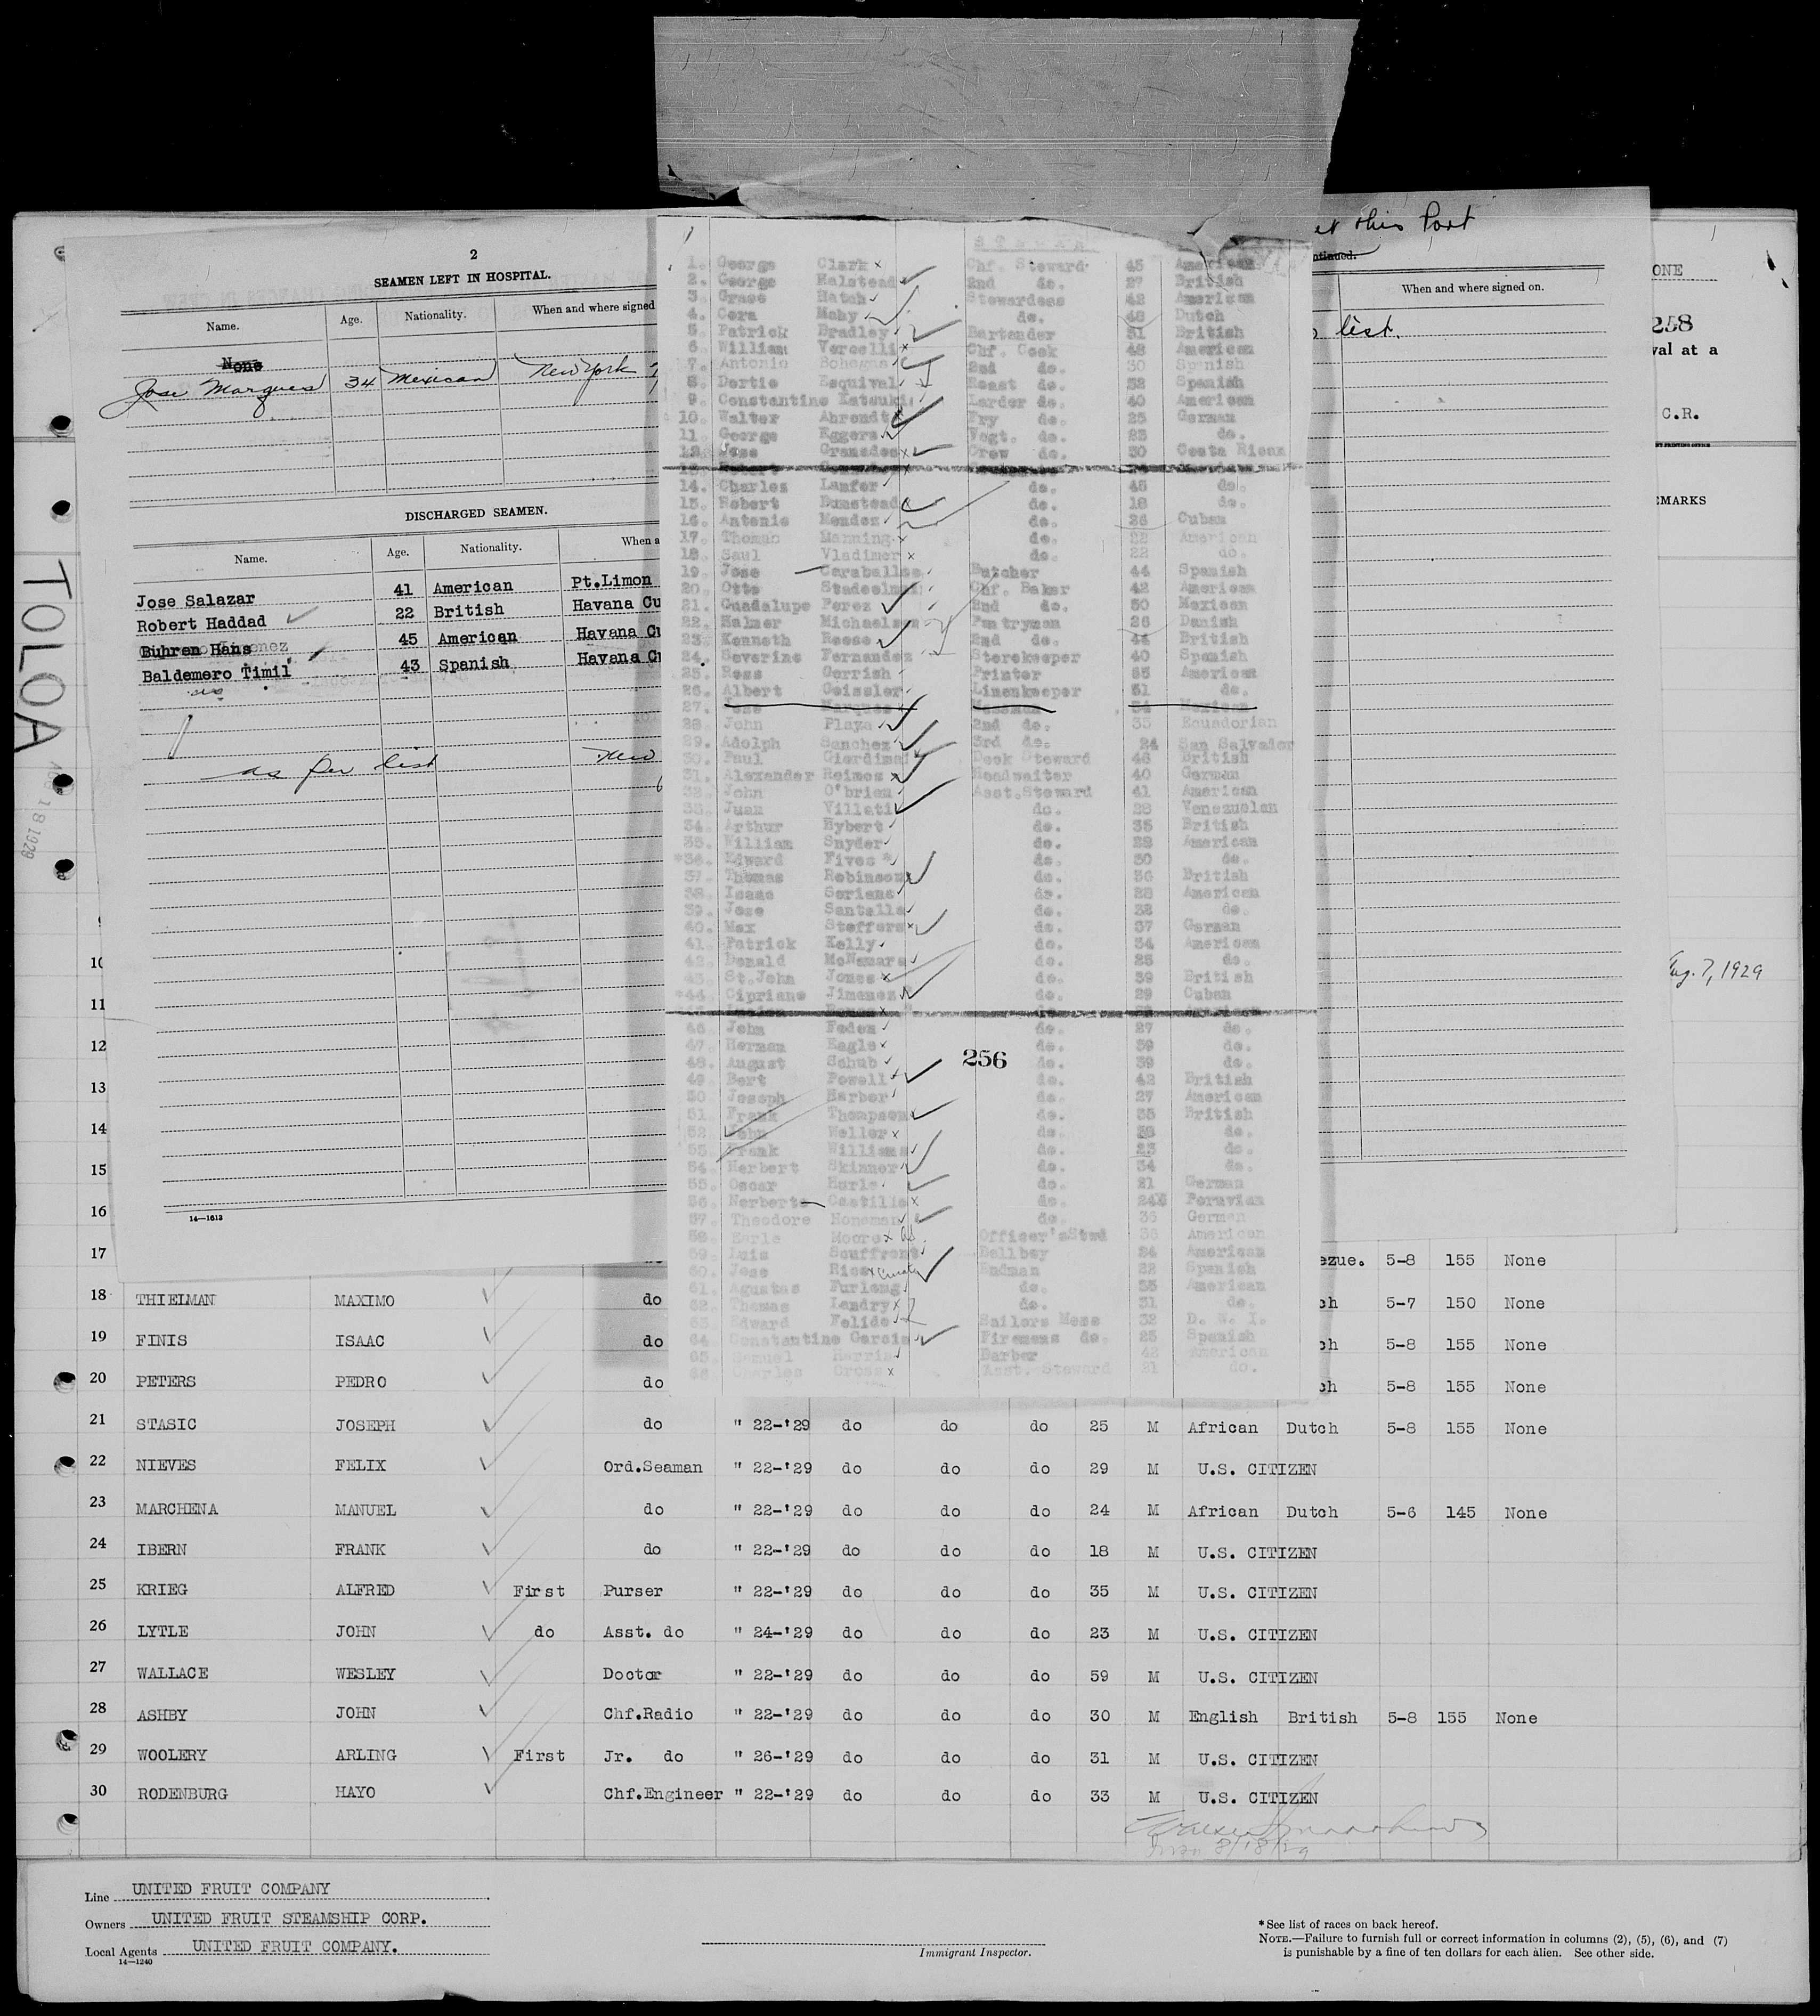 2
SEAMEN LEFT IN HOSPITAL.
Name. Age. Nationality. When and where signed
None
Jose Marques 34 Mexican New York
DISCHARGED SEAMEN.
Name. Age. Nationality. When a
Jose Salazar 41 American Pt.Limon
Robert Haddad 22 British Havana Cu
Buhren Hans 45 American Havana Cu
Baldemero Timil 43 Spanish Havana Cu
as per list New
14—1613
TOLOA
18 1929
at this Port
When and where signed on.
list.
ONE
258
val at a
C.R.
EMARKS
Aug. 7, 1929
1. George Clark Chf. Steward 45 American
2. George Halstead 2nd do. 27 British
3. Grace Hatch Stewardess 42 American
4. Cora Mahy do. 48 Dutch
5. Patrick Bradley Bartender 51 British
6. William Vercelli Chf. Cook 48 American
7. Antonio 2nd do. 30 Spanish
8. Esquival Roast do. 52 Spanish
9. Constantine Katsuki Larder do. 40 American
10. Walter Ahrendt Fry do. 25 German
11. George Eggers Vegt. do. 23 do.
12. Jose Granados Crew do. 30 Costa Rican
14. Charles Lanfer do. 45 do.
15. Robert Bumstead do. 18 do.
16. Antonio Mendez do. 26 Cuban
17. Thomas Manning do. 22 American
18. Saul Vladimer do. 22 do.
19. Jose Caraballo Butcher 44 Spanish
20. Otto Chf. Baker 42 American
21. Guadalupe Perez 2nd do. 50 Mexican
22. Halmer Michaelsen Pantryman 26 Danish
23. Kenneth Reese 2nd do. 44 British
24. Severino Fernandez Storekeeper 40 Spanish
25. Ross Gorrish Printer 55 American
26. Albert Geissler Linenkeeper 31 do.
27. Jose Marques Messman 34 Mexican
28. John Playa 2nd do. 35 Ecuadorian
29. Adolph Sanchez 3rd do. 24 San Salvador
30. Paul Giardina Deck Steward 46 British
31. Alexander Reimos Headwaiter 40 German
32. John O'brien Asst.Steward 41 American
33. Juan Villeti do. 28 Venezuelan
34. Arthur Hybert do. 35 British
35. William Snyder do. 22 American
*36. Edward Fives * do. 30 do.
37. Thomas Robinson do. 36 British
38. Isaac Soriano do. 28 American
39. Jose Santalla do. 32 do.
40. Max Steffers do. 37 German
41. Patrick Kelly do. 34 American
42. Donald McNamara do. 25 do.
43. St.John Jones do. 39 British
*44. Cipriano Jimenez do. 29 Cuban
46. John Feden do. 27 do.
47. Herman Eagle do. 39 do.
48. August Schub do. 39 do.
256
49. Bert Powell do. 42 British
50 Joseph Harber do. 27 American
51. Frank Thompson do. 35 British
52. John Weller do. 38 do.
53. Frank Williams do. 23 do.
54. Herbert Skinner do. 34 do.
55. Oscar Harle do. 21 German
56. Norberto Castillo do. 24 Peruvian
57. Theodore Honeman do. 35 German
58. Earle Moore Officer's Stwd 36 American
59. Luis Souffront Bellboy 24 American
60. Jose Rios Endman 22 Spanish
61. Agustus Furlong do. 35 American
62. Thomas Landry do. 31 do.
63. Edward Felide Sailors Mess 32 D. W. I.
64. Constantine Garcia Firemens do. 25 Spanish
65. Samuel Harris Barber 42 American
66. Charles Cross Asst. Steward 21 do.
10
11
12
13
14
15
16
17 ezue. 5-8 155 None
18 THIELMAN MAXIMO do ch 5-7 150 None
19 FINIS ISAAC do ch 5-8 155 None
20 PETERS PEDRO do ch 5-8 155 None
21 STASIC JOSEPH do " 22-'29 do do do 25 M African Dutch 5-8 155 None
22 NIEVES FELIX Ord.Seaman " 22-'29 do do do 29 M U.S. CITIZEN
23 MARCHENA MANUEL do " 22-'29 do do do 24 M African Dutch 5-6 145 None
24 IBERN FRANK do " 22-'29 do do do 18 M U.S. CITIZEN
25 KRIEG ALFRED First Purser " 22-'29 do do do 35 M U.S. CITIZEN
26 LYTLE JOHN do Asst. do " 24-'29 do do do 23 M U.S. CITIZEN
27 WALLACE WESLEY Doctor " 22-'29 do do do 59 M U.S. CITIZEN
28 ASHBY JOHN Chf.Radio " 22-'29 do do do 30 M English British 5-8 155 None
29 WOOLERY ARLING First Jr. do " 26-'29 do do do 31 M U.S. CITIZEN
30 RODENBURG HAYO Chf.Engineer " 22-'29 do do do 33 M U.S. CITIZEN
8/18/29
Line UNITED FRUIT COMPANY
Owners UNITED FRUIT STEAMSHIP CORP.
Local Agents UNITED FRUIT COMPANY.
14—1240
Immigrant Inspector.
* See list of races on back hereof.
NOTE.—Failure to furnish full or correct information in columns (2), (5), (6), and (7)
is punishable by a fine of ten dollars for each alien. See other side.